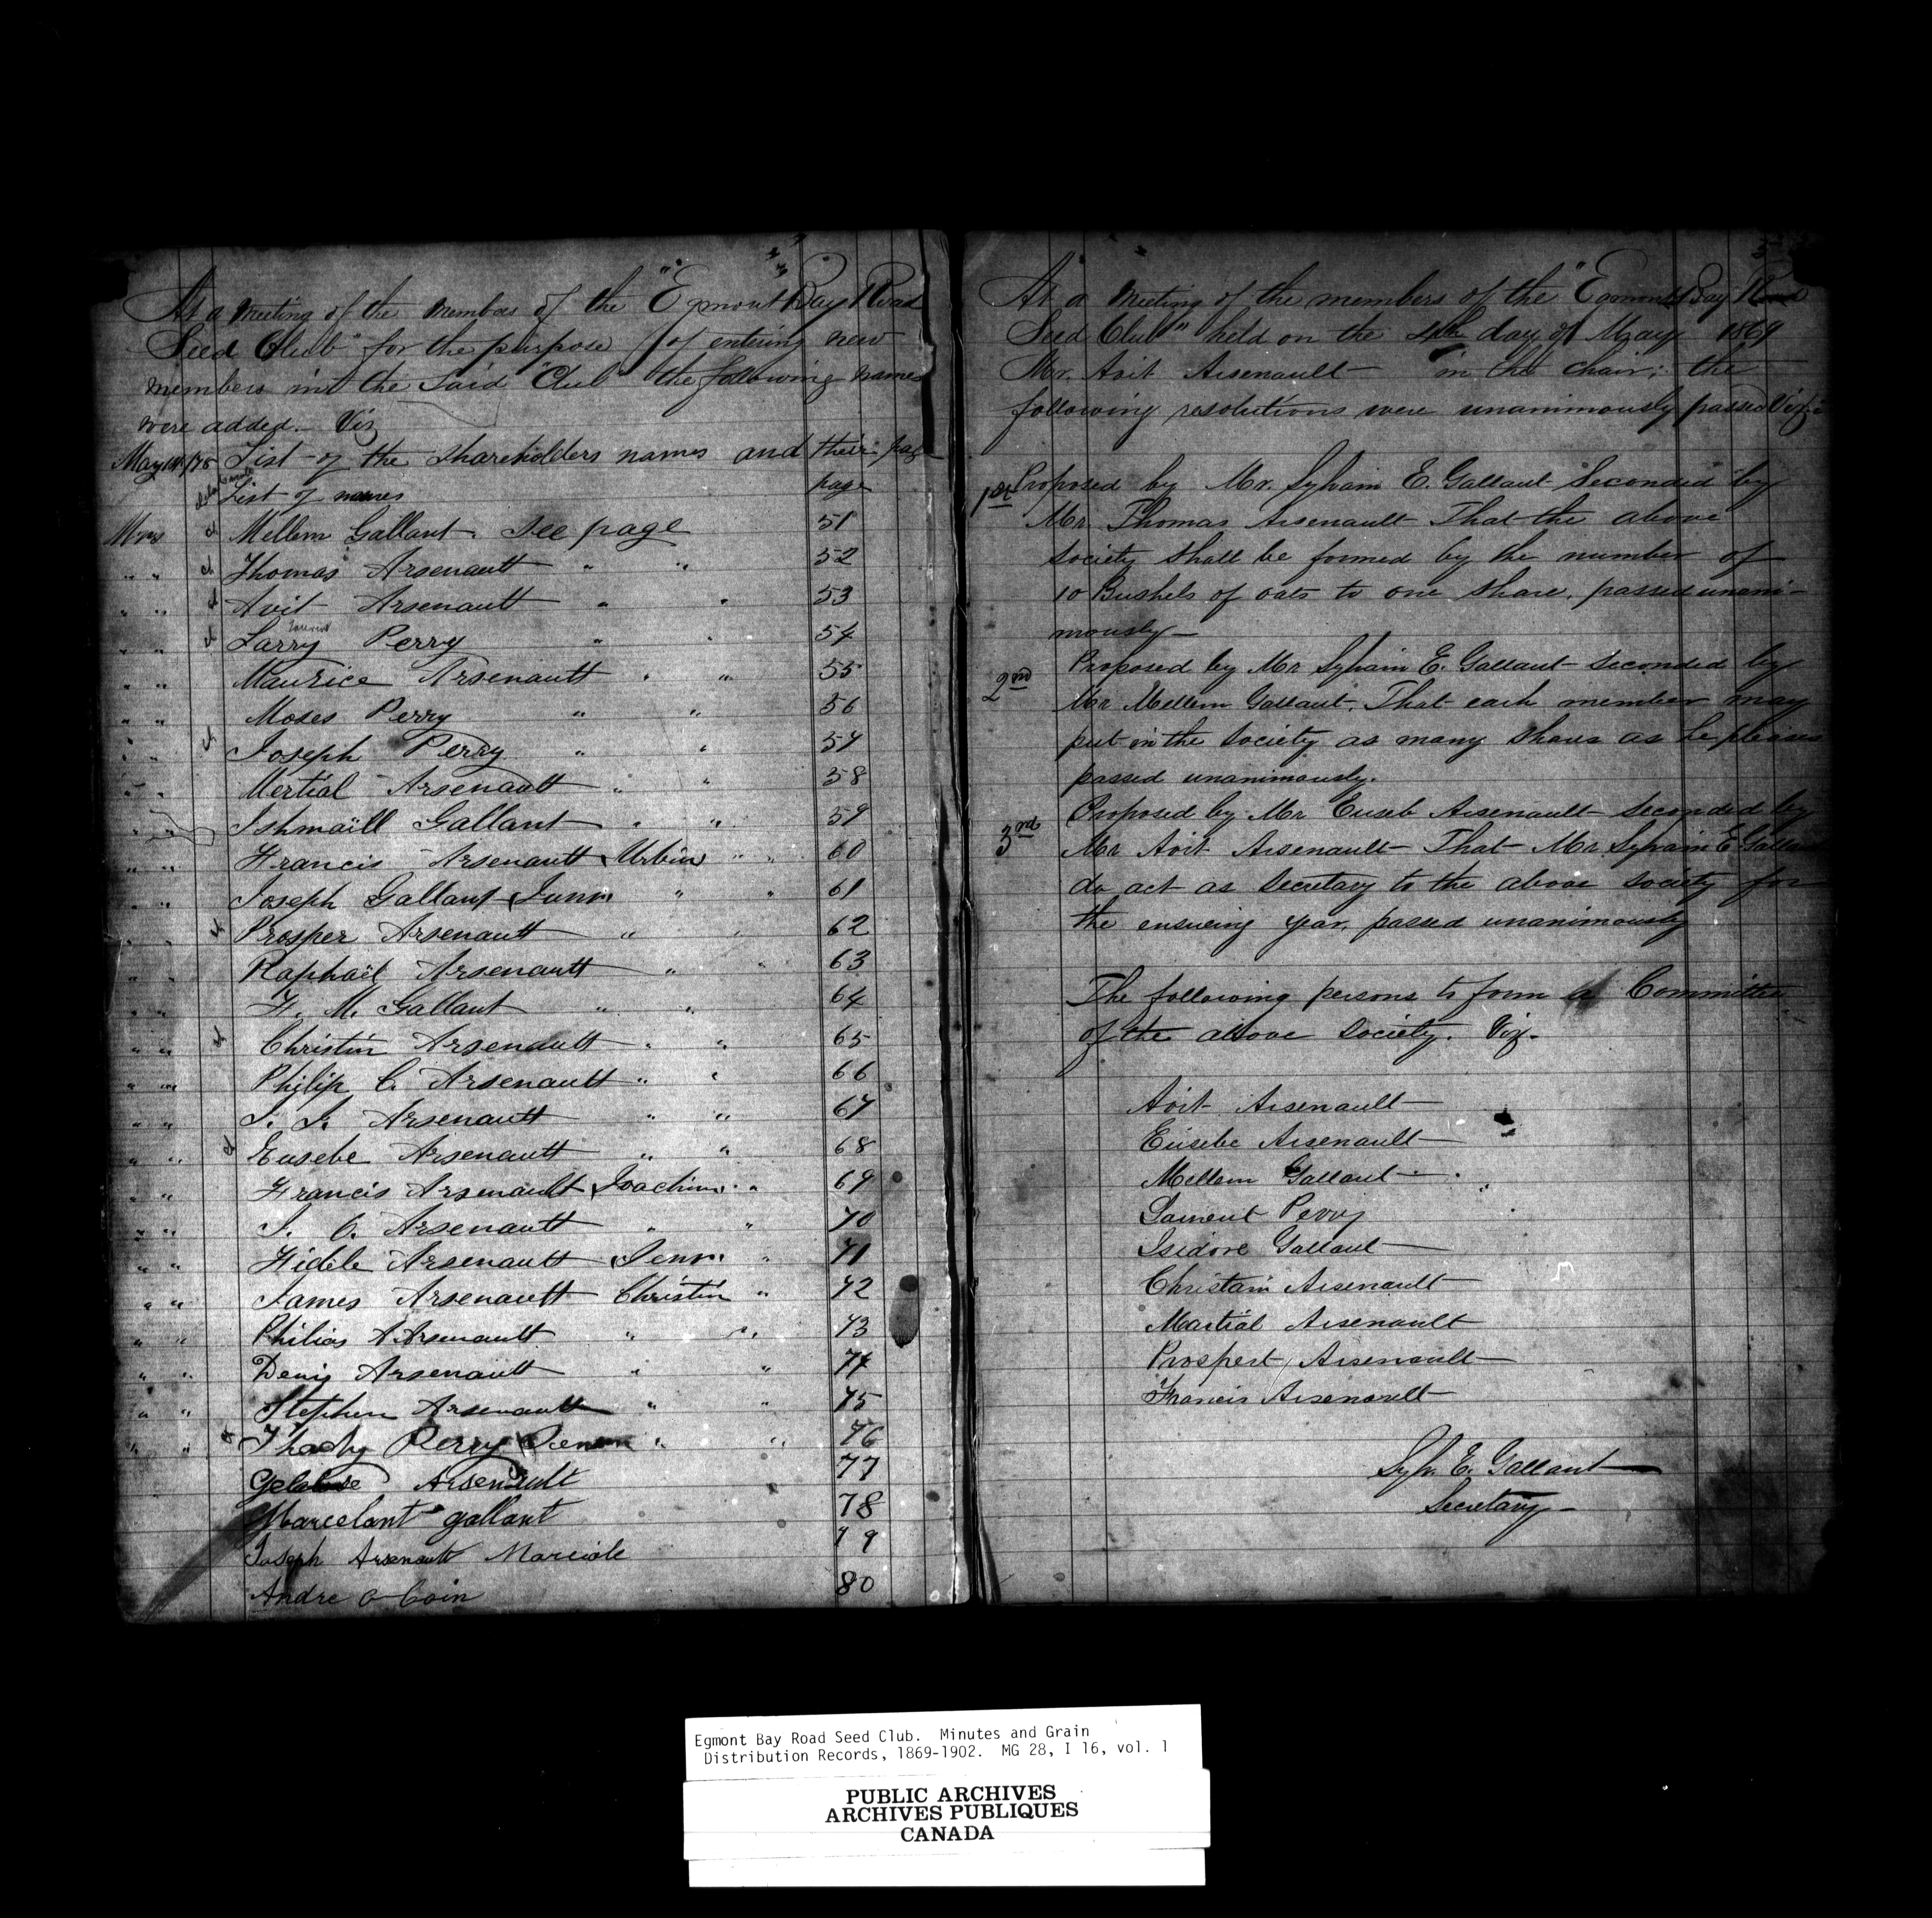 At a Meeting of the Members of the "Egmont Bay Road
Seed Club" for the purpose of entering new
members int the Said "Club" the following names
were added. Viz
May 14/75 List of the Shareholders names and their pag
List of names page
Mrs Mellem Gallant See page 51
" " Thomas Arsenault " " 52
" " Avit Arsenault " " 53
" " Larry Perry " " 54
" " Maurice Arsenault " " 55
" " Moses Perry " " 56
" " Joseph Perry " " 57
" " Mertial Arsenault " " 58
" " Ishmaill Gallant " " 59
" " Francis Arsenault Urbin " " 60
" " Joseph Gallant Junr " " 61
" " Prosper Arsenault " " 62
" " Raphael Arsenault " " 63
" " F. M. Gallant " " 64
" " Christin Arsenault " " 65
" " Philip C. Arsenault " " 66
" " J. J. Arsenault " " 67
" " Eusebe Arsenault " " 68
" " Francis Arsenault Joachim " " 69
" " J. O. Arsenault " " 70
" " Fidele Arsenault Senr. " 71
" " James Arsenault Christin " 72
" " Philias A Arsenault " " 73
" " Denis Arsenault " " 74
" " Stephen Arsenault " " 75
" " Thady Perry Senr " " 76
Arsenault 77
Marcelant gallant 78
Joseph Arsenault Marciale 79
Andre O Coin 80
5
At a Meeting of the members of the "Egmont Bay Road
Seed Club" held on the 4th day of May 1869
Mr. Avit Arsenault in the chair; the
following resolutions were unanimously passed Viz:
1st Proposed by Mr. Sylvain E. Gallant Seconded by
Mr. Thomas Arsenault That the above
society shall be formed by the number of
10 Bushels of oats to one share, passed unani-
mously
2nd Proposed by Mr Sylvain E. Gallant seconded by
Mr Mellem Gallant. That each member may
put in the society as many shares as he pleases
passed unanimously.
3rd Proposed by Mr Euseb Arsenault seconded by
Mr Avit Arsenault That Mr Sylvain E Gallant
do act as Secretary to the above society for
the ensueing year, passed unanimously
The following persons to form a Committee
of the above society. Viz.
Avit Arsenault
Eusebe Arsenault
Mellem Gallant
Lament Perry
Isidore Gallant
Christain Arsenault
Martial Arsenault
Prospert Arsenault
Francis Arsenault
Sylv. E. Gallant
Secretary
Egmont Bay Road Seed Club. Minutes and Grain
Distribution Records, 1869-1902. MG 28, I 16, vol. 1
PUBLIC ARCHIVES
ARCHIVES PUBLIQUES
CANADA